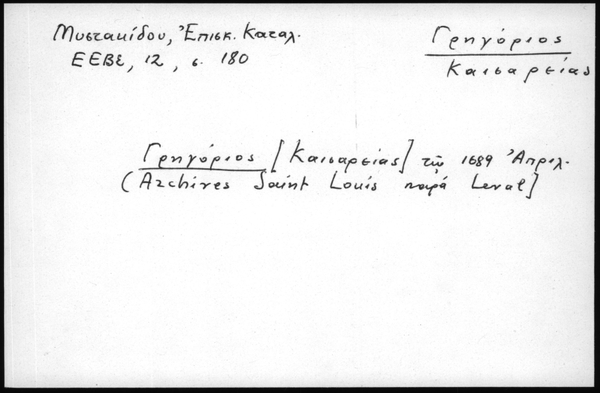 Μυστακίδου, Ἐπισκ. Καταλ.
ΕΕΒΣ, 12, σ. 180
Γρηγόριος
Καισαρείας
Γρηγόριος [Καισαρείας] τῷ 1689 Ἀπριλ.
(Archives Saint Louis παρά Leval]